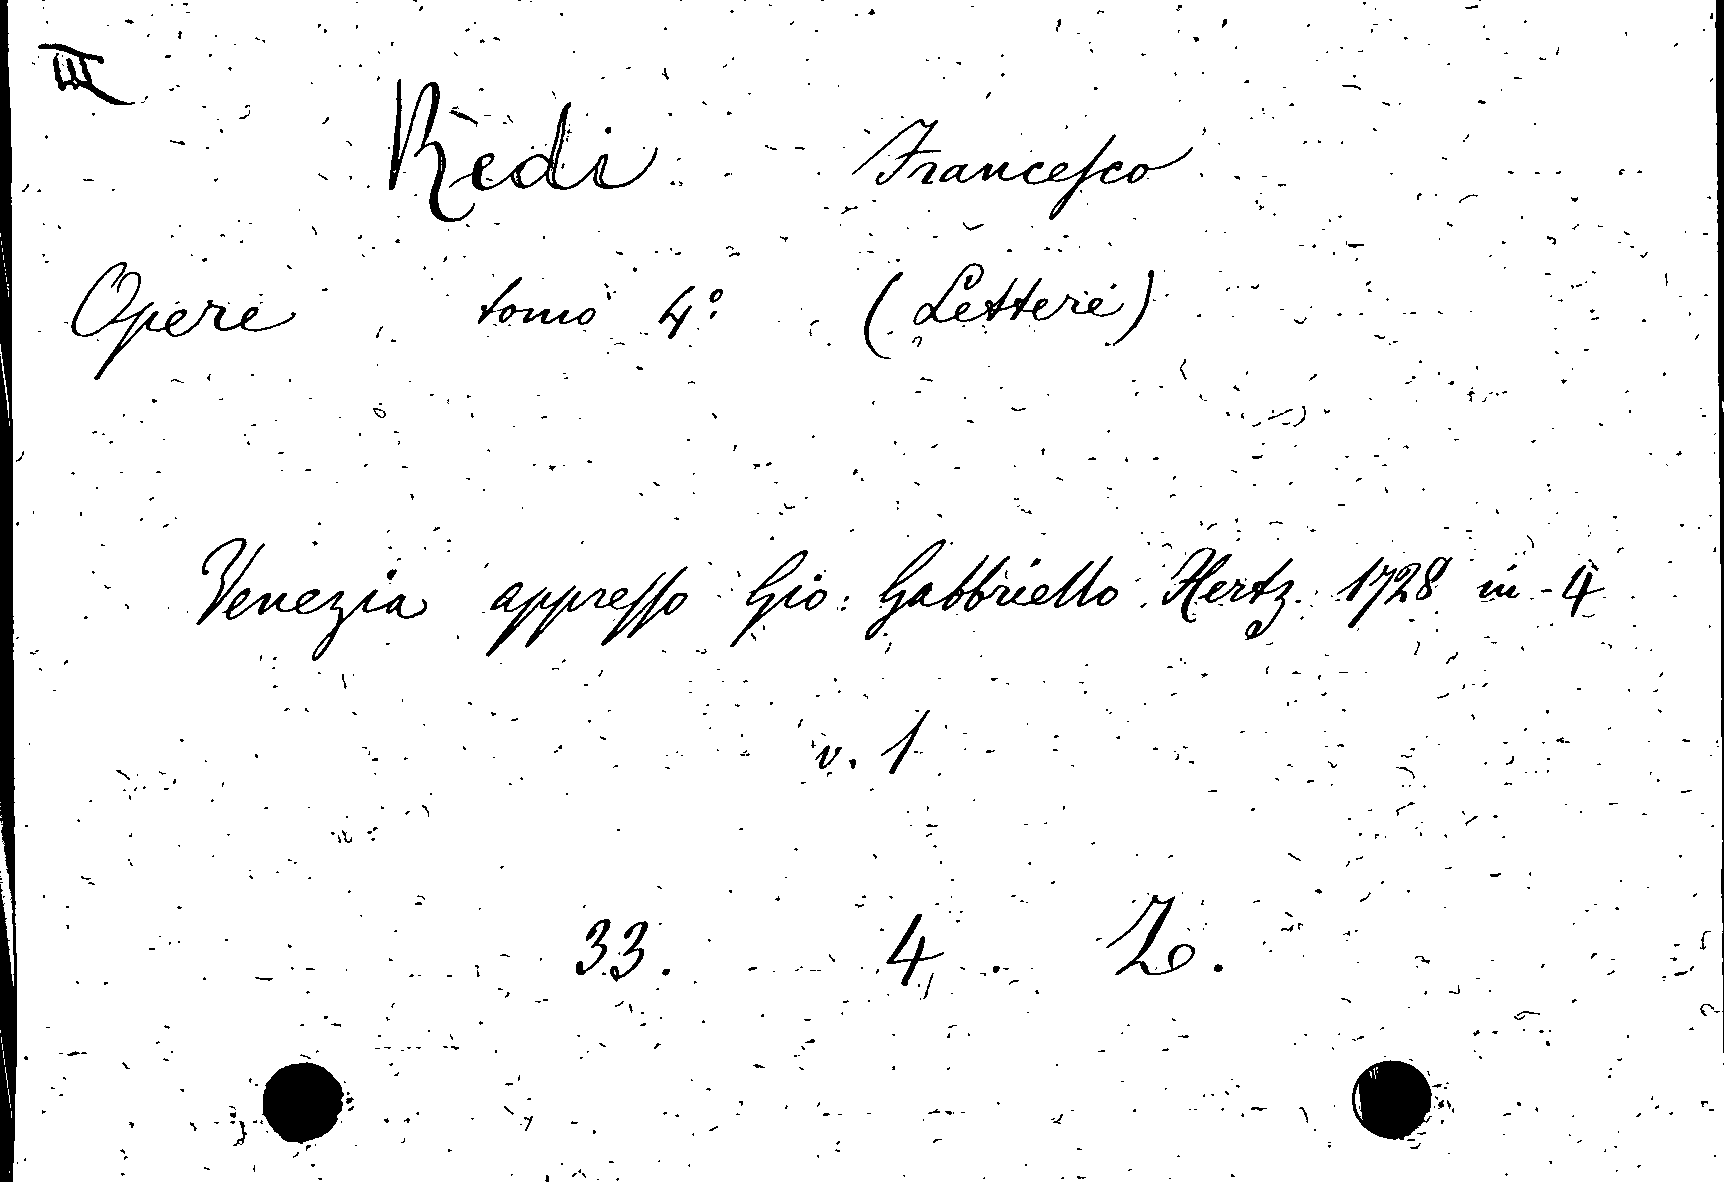 III
Redi Francesco
Opere tomo 4º (Lettere)
Venezia appresso Gio: Gabbriello Hertz 1728 in-4
v. 1
33. 4. Z.